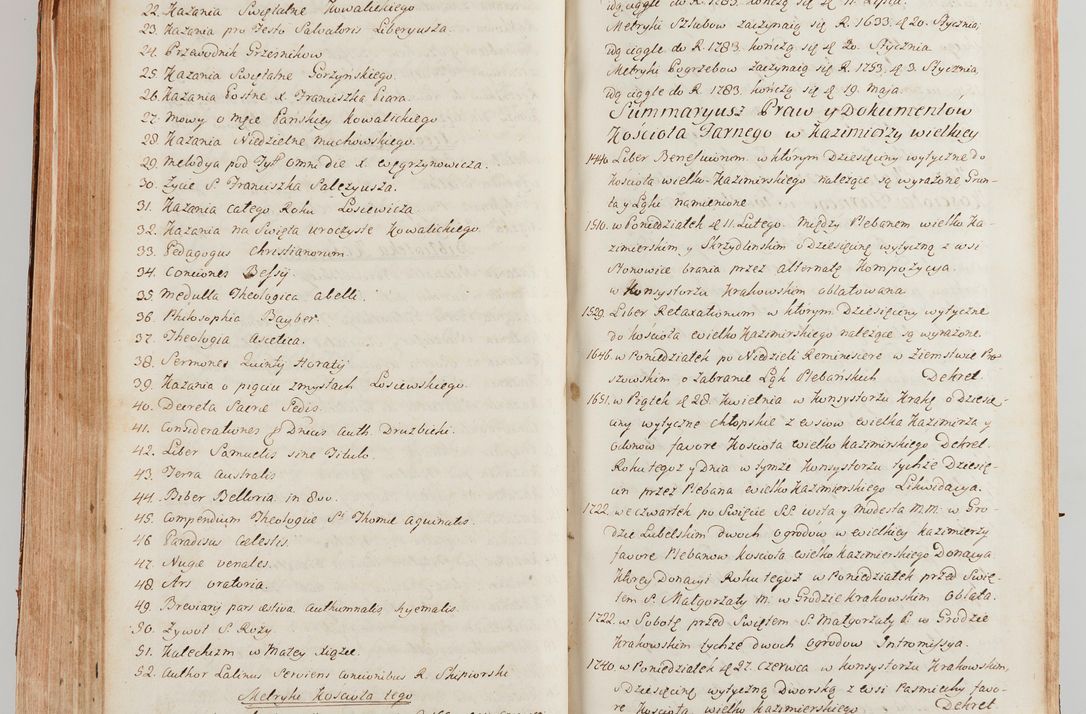 22. Kazania Swiętalne Kowalickiego
23. Kazania pro Festo Salvatoris Liberyusza.
24. Przewodnik Grzesnikow
25. Kazania Swiętalne Gorzyńskiego.
26. Kazania Postne x. Franciszka Piara.
27. Mowy o Męce Pańskiey Kowalickiego
28. Kazania Niedzielne Muchowskiego.
29. Melodya pod Tyt. Omni die x. Węgrzynowicza.
30. Zycie S. Franciszka Salezyusza.
31. Kazania całego Roku Łosiewicza
32. Kazania na Swięta uroczyste Kowalickiego
33. Pedagogus Christianorum.
34. Conciones Bessij.
35. Medulla Theologica abelli.
36. Philosophia Bayber.
37. Theologia Ascetica.
38. Sermones Quinty Horatij
39. Kazania o pięciu zmysłach Łosiewskiego.
40. Decreta Sacræ Sedis.
41. Considerationes Auth. Druzbicki.
42. Liber Samuelis sine Titulo.
43. Terra Australis
44. Biber Belloria in 8vo.
45. Compendium Theologiæ S. Thomæ Aquinatis.
46 Paradisus Cælestis.
47. Nugæ venales.
48. Ars oratoria.
49. Breviarij pars æstiva authumnalis hyemalis.
50. Zywot S. Rozy.
51. Katechizm w Małey xiązce.
52. Author Latinus Serviens concionibus R. Skiporski
Metryki Koscioła tego
idą ciągle do R. 1783. kończą się d. 11. Lipca.
Metryki Szlubow zaczynaią się R. 1633. d. 20. Stycznia,
idą ciągle do R. 1783. kończą się d. 20. Stycznia.
Metryki Pogrzebow zaczynaią się R. 1753. d. 3. Stycznia,
idą ciągle do R. 1783. kończą się d. 19. Maja.
Summaryusz Praw y Dokumentow
Kosciola Farnego w Kazimierzy wielkiey
1440. Liber Beneficiorum. w ktorym Dziesięciny wytyczne do
Kosciola wielko-Kazimirskiego należące są wyrażone Grun-
ta y Łąki namienione
1510. w Poniedziałek d. 11. Lutego. między Plebanem wielko Ka-
zimierskim y Skrzydlinskim o Dziesięcinę wytyczną z wsi
Stonowice brania przez alternatę Kompozycya.
w Konsystorzu Krakowskim oblatowana
1529. Liber Retaxationum w ktorym Dziesięciny wytyczne
do kościoła wielko Kazimirskiego należące są wyrażone.
1646. w Poniedziałek po Niedzieli Reminiscere w Ziemstwie Pro-
szowskim o Zabranie Łąk Plebańskich Dekret.
1651. w Piątek d. 28. Kwietnia w Konsystorzu Krakę o Dziesię-
ciny wytyczne chłopskie z wsiow wielka Kazimirza y
Odonow favore Kosciola wielko kazimirskiego Dekret.
Roku tegoż y Dnia w tymże Konsystorzu tychże Dziesię-
cin przez Plebana wielko Kazimierskiego Likwidacya.
1722. we czwartek po Swięcie SS. wita y Modesta M.M. w Gro-
dzie Lubelskim dwoch ogrodow w wielkiey kazimierzy
favore Plebanow kosciola wielko kazimierskiego Donacya
Ktorey Donacyi Roku tegoż w Poniedziałek przed Swię-
tem S. Małgorzaty M. w Grodzie krakowskim Oblata.
1722. w Sobotę przed Swiętem S. Małgorzaty P. w Grodzie
Krakowskim tychze dwoch ogrodow Intromissya.
1740. w Poniedziałek d. 27. czerwca w konsystorzu Krakowskim,
o Dziesięcinę wytyczną Dworską z wsi Pasmiechy favo-
re Kosciola wielko kazimierskiego Dekret